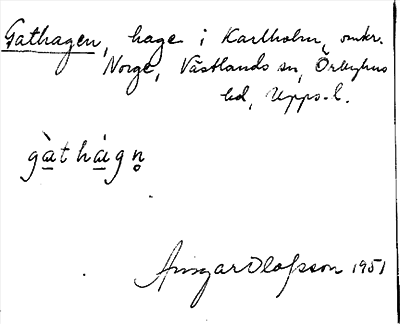 Gathagen, hage i Karlholm, omkr.
Norge, Västlands sn, Örbyhus
hd, Upps. l.
gàthágn̥
Ansgar Olofsson 1951